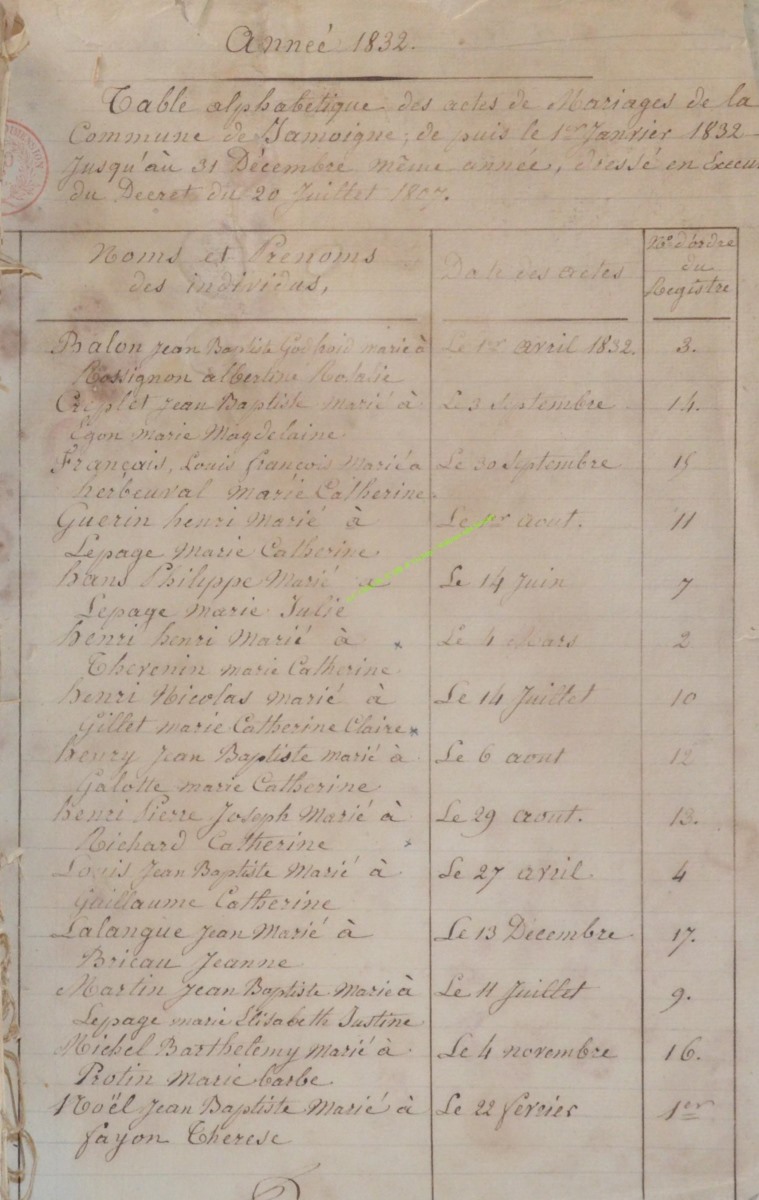 Année 1832.
Table alphabétique des actes de Mariages de la
Commune de Jamoigne, de puis le 1er Janvier 1832
Jusqu'àu 31 Décembre même année, dressé en Execu
du Decret du 20 Juillet 1807.
Noms et Prenoms
des individus,
Date des actes
No d'ordre
du
Registre
Halon Jean Baptiste Godfroid marié à Le 1er avril 1832. 3.
Rossignon albertine Rosalie
Criplet Jean Baptiste marié à Le 3 Septembre 14.
Egon marie Magdelaine
Français, Louis françois Marié a Le 30 Septembre 15
herbeuval marie Catherine
Guerin henri Marié à Le 1er aout. 11
Lepage Marie Catherine
hans Philippe Marié a Le 14 Juin 7
Lepage marie Julie
henri henri Marié à Le 4 Mars 2
Thevenin marie Catherine
henri Nicolas marié à Le 14 Juillet 10
Gillet marie Catherine Claire
henry Jean Baptiste marié à Le 6 aout 12
Galotte marie Catherine
henri Pierre Joseph Marié à Le 29 aout. 13.
Richard Catherine
Louis Jean Baptiste Marié à Le 27 avril 4
Guillaume Catherine
Lalangue Jean Marié à Le 13 Décembre 17.
Bricau Jeanne
Martin Jean Baptiste Marié à Le 11 Juillet 9.
Lepage marie Elisabeth Justine
Michel Barthelemy marié à Le 4 novembre 16.
Protin Marie barbe
Noël Jean Baptiste Marié à Le 22 fevrier 1er
fayon Therese